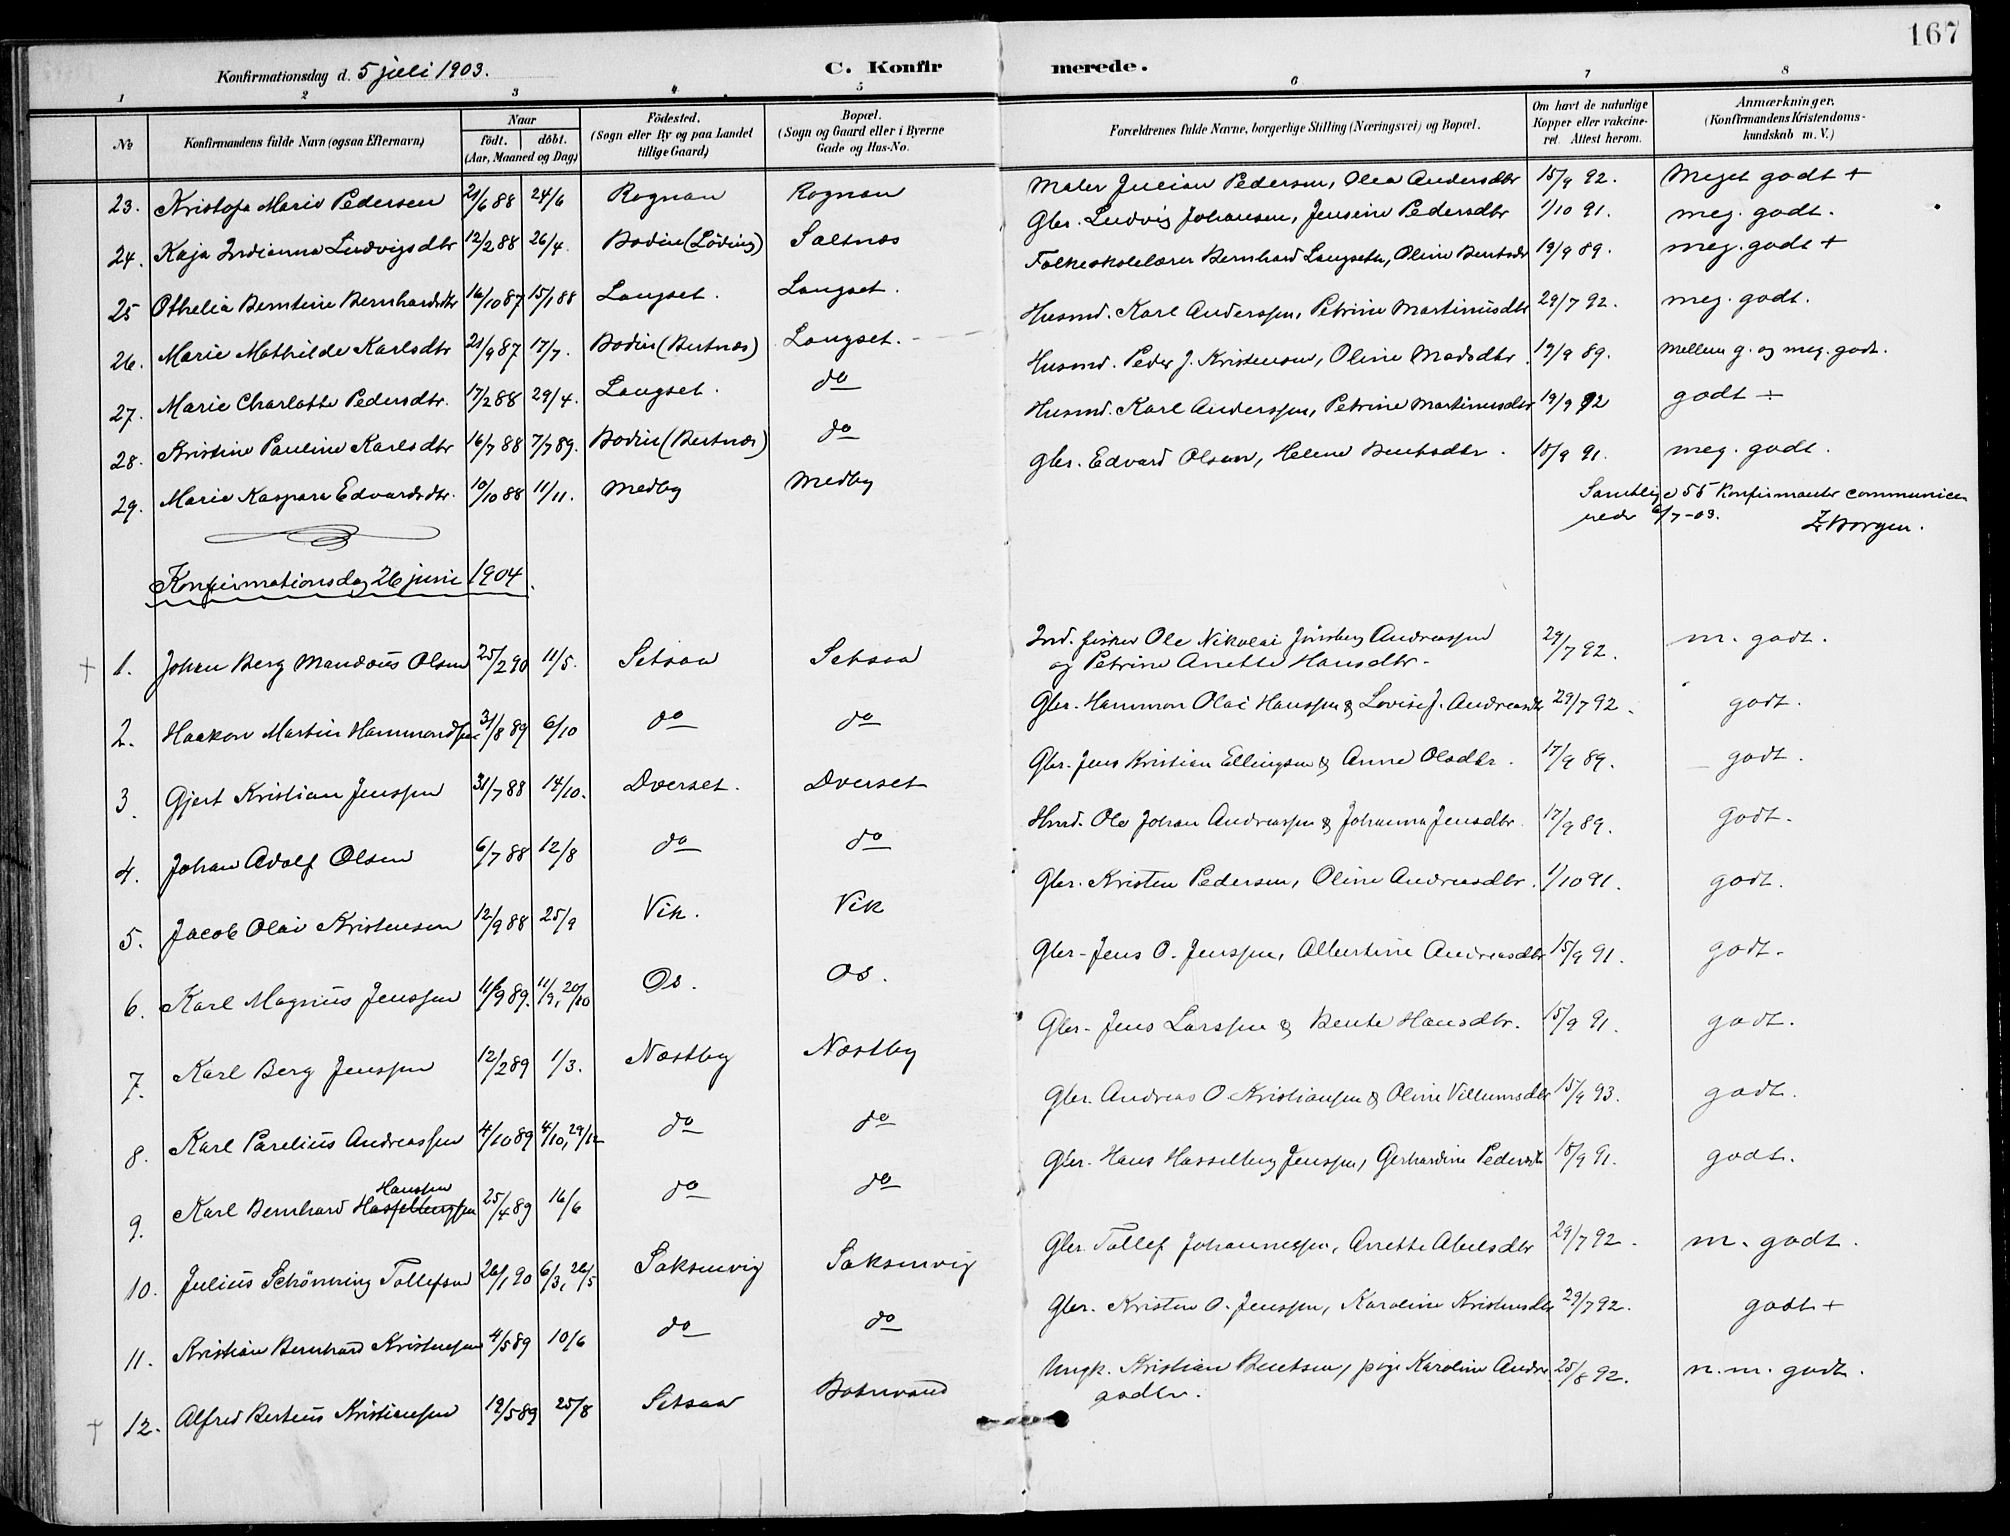 167
Konfirmationsdag d. 5 juli 1903. C. Konfirmerede.
1 2 3 4 5 6 7 8
№ Konfirmandens fulde Navn (ogsaa Efternavn) Naar födt. döbt. (Aar, Maaned og Dag) Födested. (Sogn eller By og paa Landet tillige Gaard) Bopæl. (Sogn og Gaard eller i Byerne Gade og Hus-No. Forældrenes fulde Navne, borgerlige Stilling (Næringsvei) og Bopæl. Om havt de naturlige Kopper eller vakcineret. Attest herom. Anmærkninger. (Konfirmandens Kristendomskundskab m. V.)
23. Kristofa Marie Pedersen 21/6 88 24/6 Rognan Rognan Maler Julian Pedersen, Olea Andersdtr 15/9 92. Meget godt +
24. Kaja Indianna Ludvigsdtr 12/2 88 26/4. Bodin (Löding) Saltnæs Gbr. Ludvig Johansen, Jensine Pedersdtr 1/10 91. meg. godt.
25 Othelia Berntine Bernhardsdtr 16/10 87 15/1 88 Langset. Langset. Folkeskolelærer Bernhard Langseth, Oline Bentsdtr 19/9 89. meg. godt +
26. Marie Mathilde Karlsdtr 21/9 87 17/7. Bodin (Bertnæs) Langset. Husmd. Karl Anderssen, Petrine Martinusdtr 29/7 92. meg. godt.
27. Marie Charlotte Pedersdtr. 17/2 88 29/4. Langset. do Husmd. Peder J. Kristensen, Oline Madsdtr 19/9 89. Mellem g. og meg. godt.
28. Kristine Pauline Karlsdtr 16/7 88 7/7 89. Bodin (Bertnæs) do Husmd. Karl Anderssen, Petrine Martinusdtr 19/9 92 godt ÷
29. Marie Kaspara Edvardsdtr. 10/10 88 11/11. Medby Medby Gbr. Edvard Olsen, Helene Bentsdtr. 18/9 91. meg. godt.
Samtlige 55 Konfirmanter communicerede 6/7-03. Borgen.
Konfirmationsdag 26 juni 1904.
1. Johan Berg Mandius Olsen 25/2 90 11/5. Setsaa Setsaa Ind. fisker Ole Nikolai Jönsberg Andreassen 29/7 92. m. godt.
og Petrine Anette Hansdtr.
2. Haakon Martin Hammondssen 31/8 89 6/10 do do Gbr. Hammon Olai Hanssen & Lovise J. Andreasdtr 29/7 92. godt.
3. Gjert Kristian Jenssen 31/7 88 14/10. Dverset. Dverset Gbr. Jens Kristian Ellingsen & Anne Olsdtr. 17/9 89. godt.
4. Johan Adolf Olsen 6/7 88 12/8 do do Hmd. Ole Johan Andreassen & Johanna Jensdtr. 17/9 89. godt.
5. Jacob Olai Kristensen 12/9 88 25/9 Vik. Vik Gbr. Kristen Pedersen, Oline Andreasdtr. 1/10 91. godt.
6. Karl Magnus Jenssen 11/9 89. 11/9, 20/10 Os. Os. Gbr. Jens O. Jenssen, Albertine Andreasdtr 15/9 91. godt.
7. Karl Berg Jenssen 12/2 89 1/3. Næstby Næstby Gbr. Jens Larssen & Bente Hansdtr. 15/9 91. godt.
8. Karl Parelius Andreassen 4/10 89 4/10, 29/12 do do Gbr. Andreas O. Kristianssen & Oline Villumsdtr 15/9 93. godt.
9. Karl Bernhard Hasselbergssen Hanssen 25/4 89 16/6 do do Gbr. Hans Hasselberg Jenssen, Gerhardine Pedersdtr 18/9 91. godt.
10. Julius Schönning Tollefsen 26/1 90 6/3, 26/5 Saksenvig Saksenvig Gbr. Tollef Johannessen, Anette Abelsdtr 29/7 92. m. godt.
11. Kristian Bernhard Kristenssen 4/5 89 10/6 do do Gbr. Kristen O. Jenssen, Karoline Kristensdtr 29/7 92. godt +
12. Alfred Berteus Kristianssen 19/5 89 25/8 Setsaa Botnvand Ungk. Kristian Bentsen, pige Karoline Andreasdtr. 25/8 92. n. m. godt.